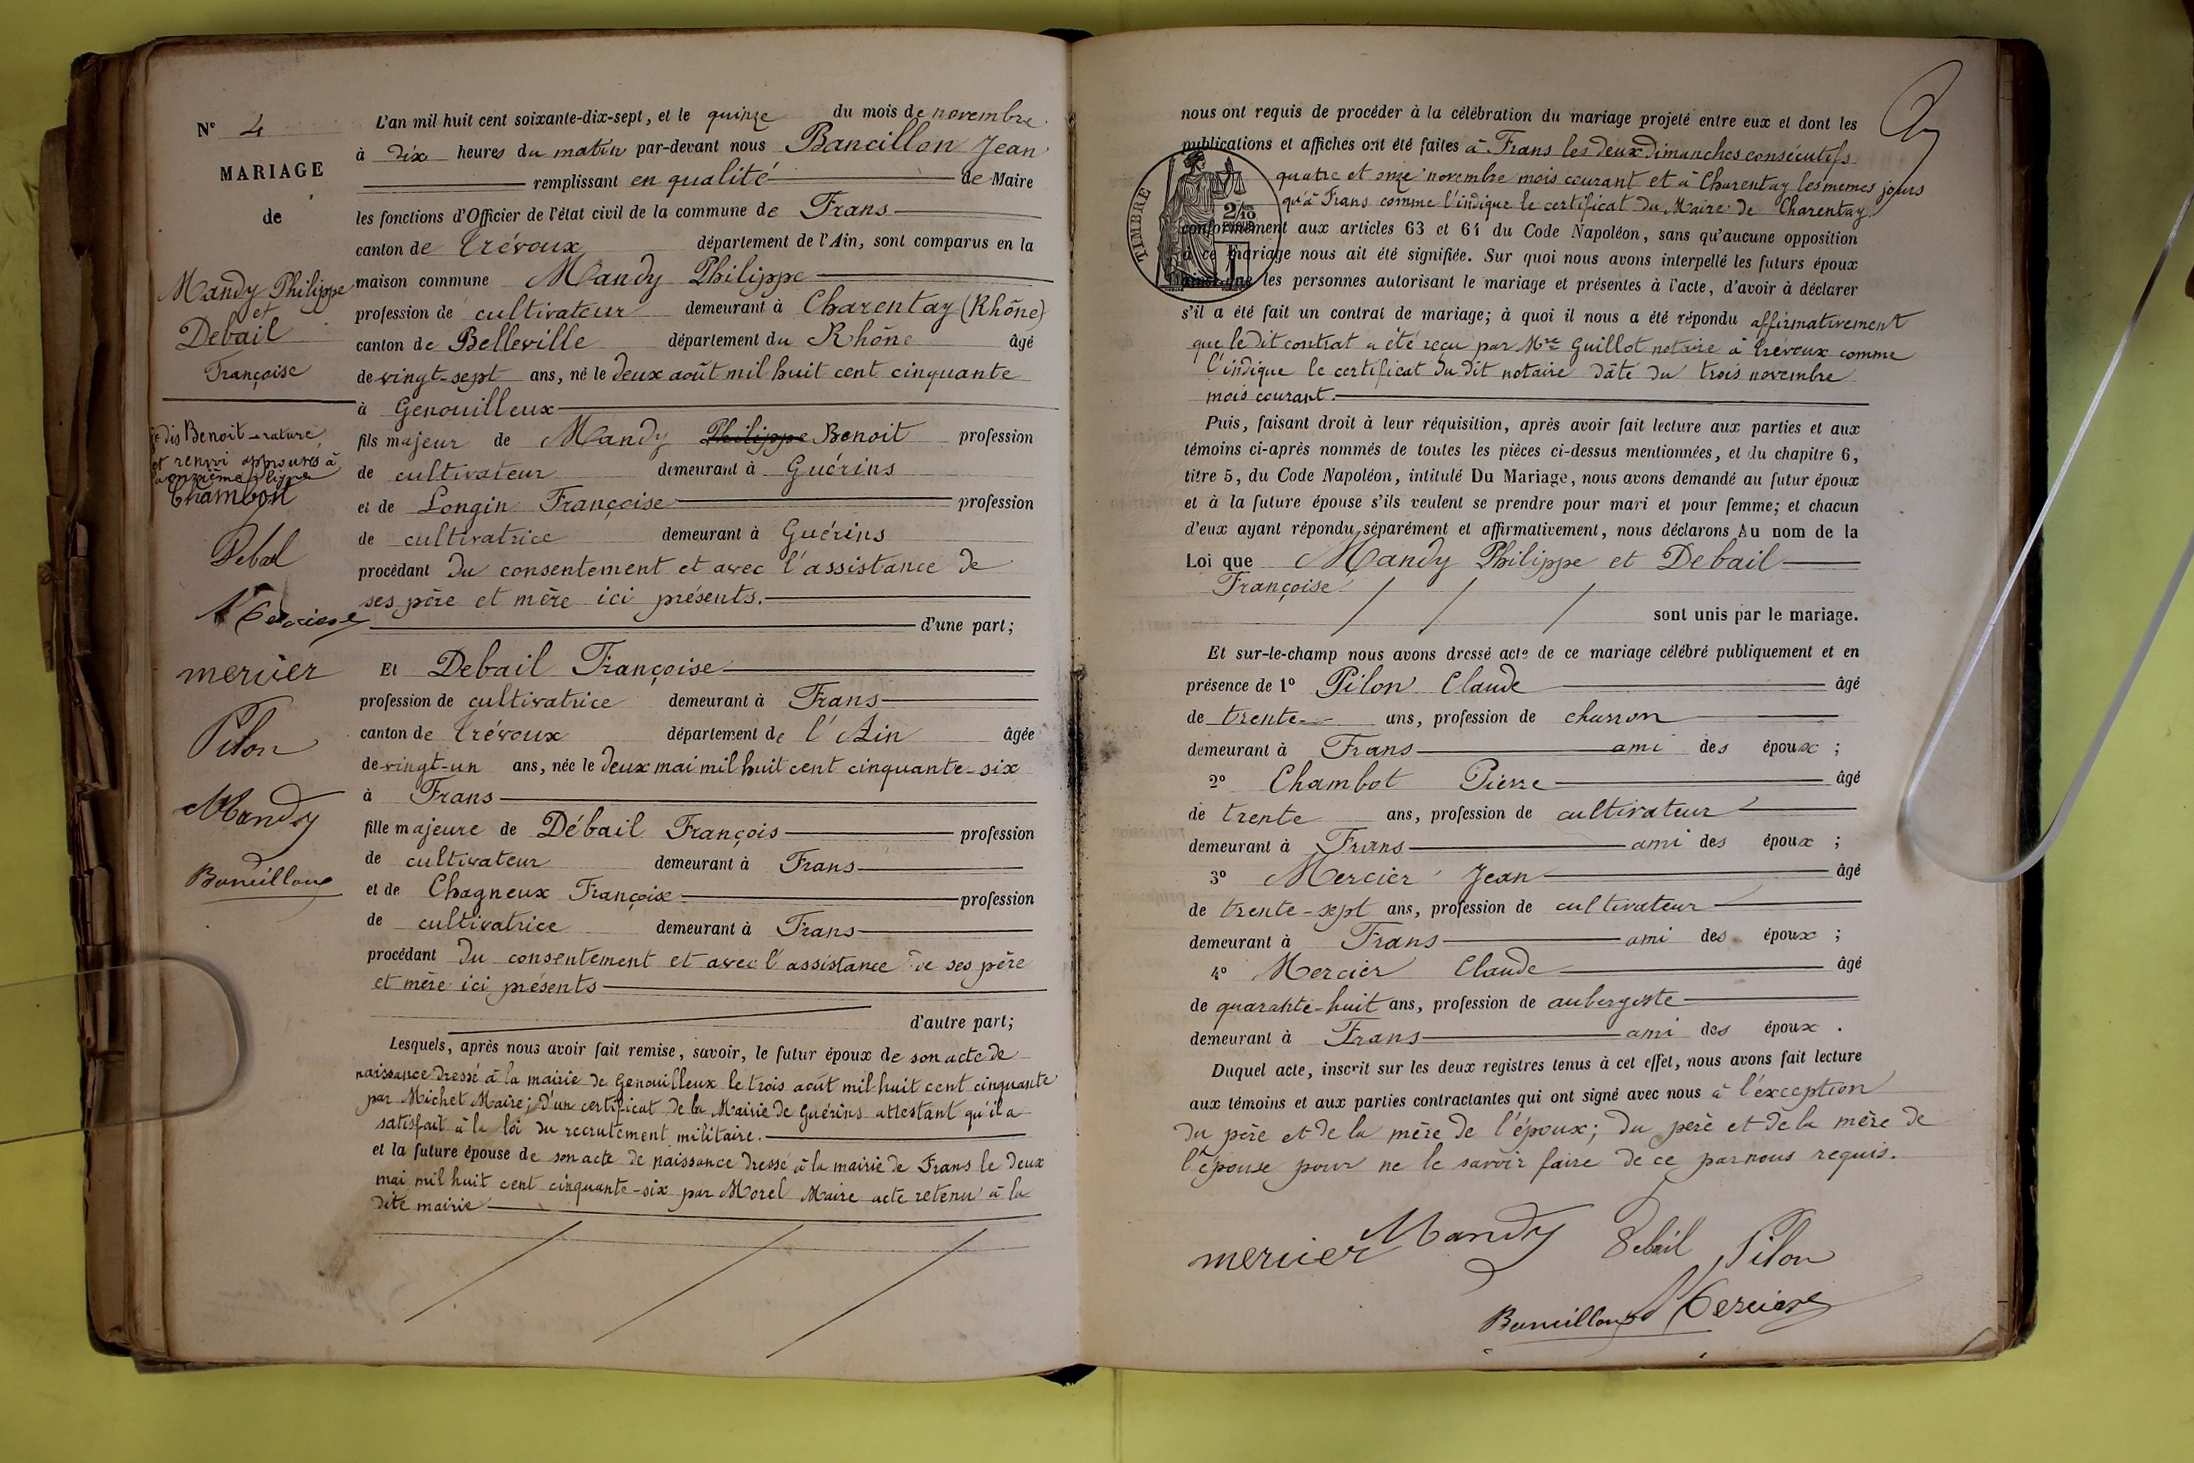 N° 4
MARIAGE
de
Mandy Philippe
et
Debail
Françoise
je dis Benoit rature
et renvoi approuvés à
la onzième ligne
Chambon
Debal
mercier
Pilon
Mandy
Bancillon
L'an mil huit cent soixante-dix-sept, et le quinze du mois de novembre
à dix heures du matin par-devant nous Bancillon Jean
remplissant en qualité de Maire
les fonctions d'Officier de l'état civil de la commune de Frans
canton de Trévoux département de l'Ain, sont comparus en la
maison commune Mandy Philippe
profession de cultivateur demeurant à Charentay (Rhône)
canton de Belleville département du Rhône âgé
de vingt-sept ans, né le deux août mil huit cent cinquante
à Genouilleux
fils majeur de Mandy Philippe Benoit profession
de cultivateur demeurant à Guérins
et de Longin Françoise profession
de cultivatrice demeurant à Guérins
procédant du consentement et avec l'assistance de
ses père et mère ici présents.
d'une part;
Et Debail Françoise
profession de cultivatrice demeurant à Frans
canton de Trévoux département de l'Ain âgée
de vingt-un ans, née le deux mai mil huit cent cinquante-six
à Frans
fille majeure de Débail François profession
de cultivateur demeurant à Frans
et de Chagneux Françoise profession
de cultivatrice demeurant à Frans
procédant du consentement et avec l'assistance de ses père
et mère ici présents
d'autre part;
Lesquels, après nous avoir fait remise, savoir, le futur époux de son acte de
naissance dressé à la mairie de Genouilleux le trois août mil huit cent cinquante
par Michet Maire; d'un certificat de la Mairie de Guérins attestant qu'il a
satisfait à la loi du recrutement militaire.
et la future épouse de son acte de naissance dressé à la mairie de Frans le deux
mai mil huit cent cinquante-six par Morel Maire acte retenu à la
dite mairie
nous ont requis de procéder à la célébration du mariage projeté entre eux et dont les
publications et affiches ont été faites à Frans les deux dimanches consécutifs
quatre et onze novembre mois courant et à Charentay les memes jours
qu'à Frans comme l'indique le certificat du Maire de Charentay
TIMBRE
2/10
conformément aux articles 63 et 64 du Code Napoléon, sans qu'aucune opposition
à ce mariage nous ait été signifiée. Sur quoi nous avons interpellé les futurs époux
ainsi que les personnes autorisant le mariage et présentes à l'acte, d'avoir à déclarer
s'il a été fait un contrat de mariage; à quoi il nous a été répondu affirmativement
que le dit contrat a été reçu par Mre Guillot notaire à Trévoux comme
l'indique le certificat du dit notaire dâté du trois novembre
mois courant.
Puis, faisant droit à leur réquisition, après avoir fait lecture aux parties et aux
témoins ci-après nommés de toutes les pièces ci-dessus mentionnées, et du chapitre 6,
titre 5, du Code Napoléon, intitulé Du Mariage, nous avons demandé au futur époux
et à la future épouse s'ils veulent se prendre pour mari et pour femme; et chacun
d'eux ayant répondu séparément et affirmativement, nous déclarons Au nom de la
Loi que Mandy Philippe et Debail
Françoise
sont unis par le mariage.
Et sur-le-champ nous avons dressé acte de ce mariage célébré publiquement et en
présence de 1° Pilon Claude âgé
de trente ans, profession de charron
demeurant à Frans ami des époux ;
2° Chambot Pierre âgé
de trente ans, profession de cultivateur
demeurant à Frans ami des époux ;
3° Mercier Jean âgé
de trente-sept ans, profession de cultivateur
demeurant à Frans ami des époux ;
4° Mercier Claude âgé
de quarante-huit ans, profession de aubergiste
demeurant à Frans ami des époux .
Duquel acte, inscrit sur les deux registres tenus à cet effet, nous avons fait lecture
aux témoins et aux parties contractantes qui ont signé avec nous à l'éxception
du père et de la mère de l'époux; du père et de la mère de
l'épouse pour ne le savoir faire de ce par nous requis.
mercier Mandy Debail Pilon
Bancillon